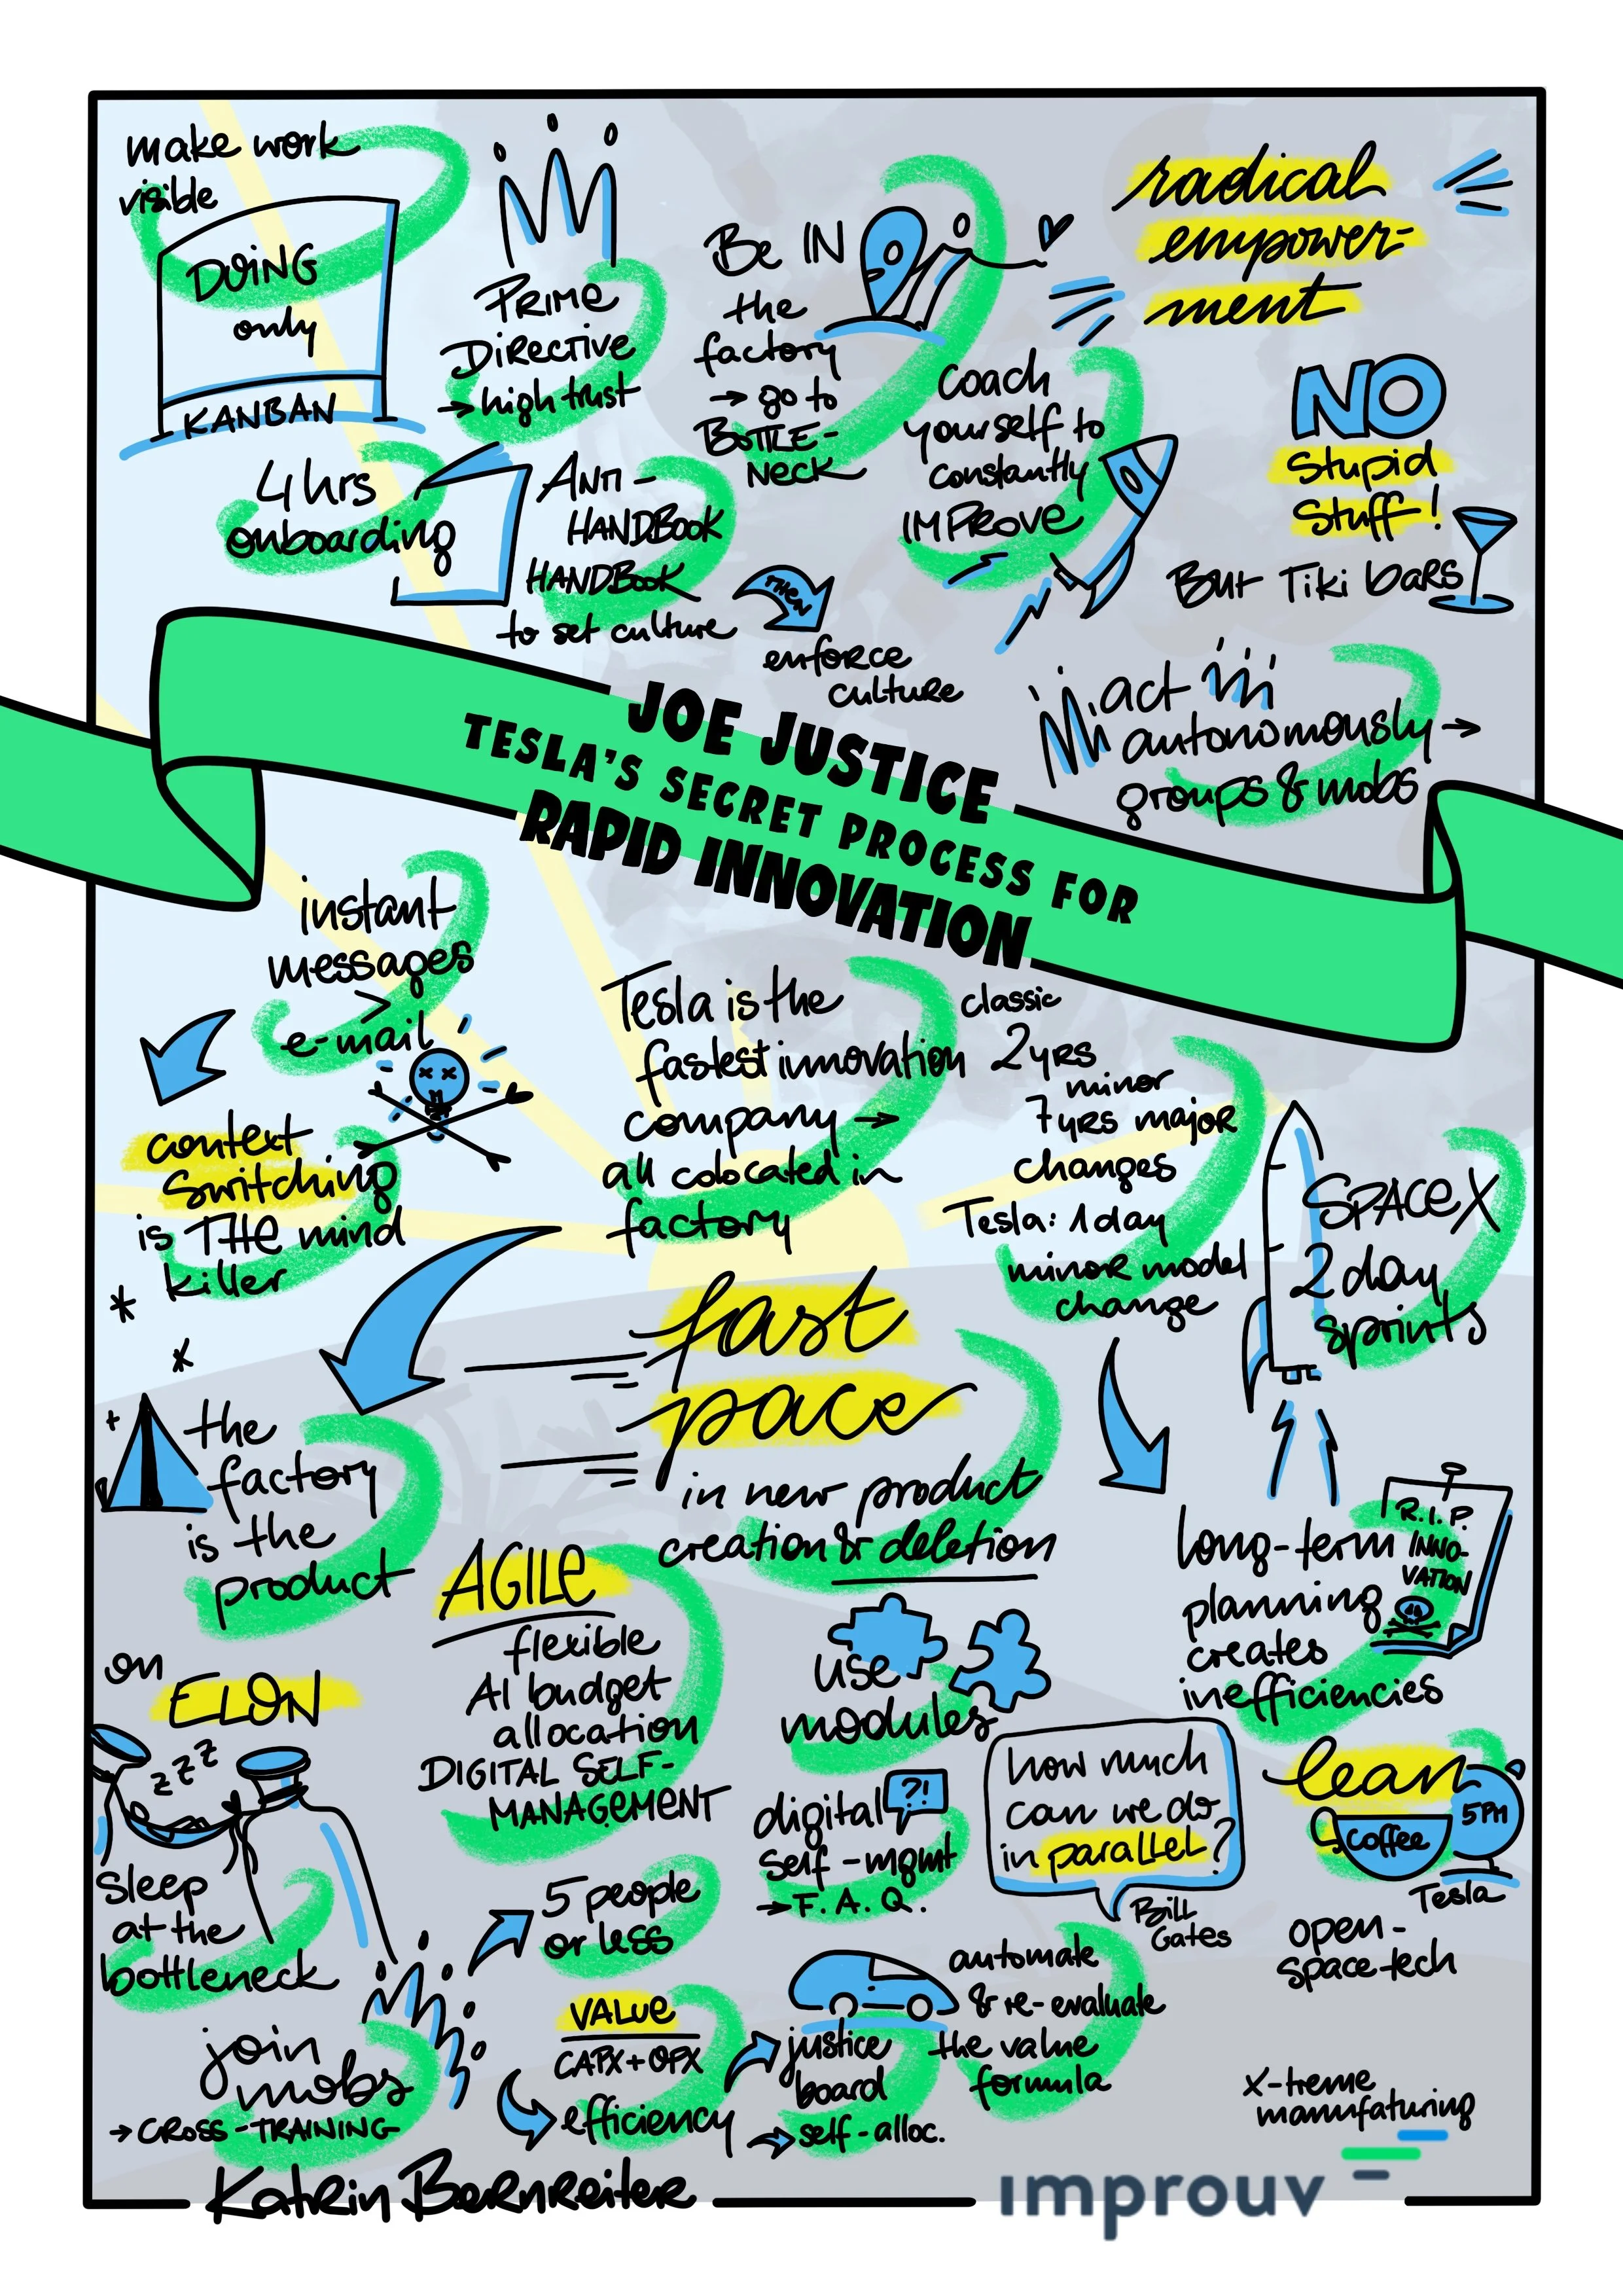 make work
visible
DOING
only
KANBAN
PRIME
DIRECTIVE
→ high trust
Be IN
the
factory
→ go to
BOTTLE-
NECK
radical
empower-
ment
coach
yourself to
constantly
IMPROVE
NO
Stupid
Stuff!
But Tiki bars
4 hrs
onboarding
ANTI-
HANDBOOK
HANDBOOK
to set culture
THEN
enforce
culture
act
autonomously →
groups & mobs
JOE JUSTICE
TESLA'S SECRET PROCESS FOR
RAPID INNOVATION
instant
messages
>
e-mail
context
switching
is THE mind
killer
Tesla is the
fastest innovation
company →
all colocated in
factory
classic
2 yrs
minor
7 yrs major
changes
Tesla: 1 day
minor model
change
SPACEX
2 day
sprints
fast
pace
in new product
creation & deletion
the
factory
is the
product
long-term
planning
creates
inefficiencies
R.I.P.
INNO-
VATION
AGILE
flexible
AI budget
allocation
DIGITAL SELF-
MANAGEMENT
use
modules
on
ELON
z z z
sleep
at the
bottleneck
digital
?!
self-mgmt
→ F.A.Q.
how much
can we do
in parallel?
Bill
Gates
lean
coffee
5PM
Tesla
open-
space-tech
5 people
or less
join
mobs
→ CROSS-TRAINING
VALUE
CAPX + OPX
efficiency
justice
board
→ self-alloc.
automate
& re-evaluate
the value
formula
x-treme
manufaturing
Katrin Bernreiter
improuv